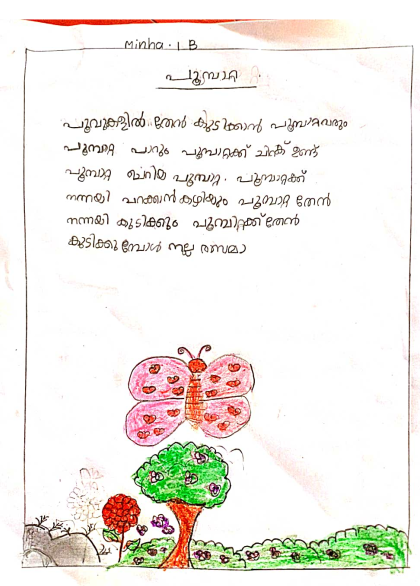 Minha. I B
പൂമ്പാറ്റ
പൂവുകളിൽ തേൻ കുടിക്കാൻ പൂമ്പാറ്റവരും
പൂമ്പാറ്റ പാറും പൂമ്പാറ്റക്ക് ചിറക് ഉണ്ട്
പൂമ്പാറ്റ ചെറിയ പൂമ്പാറ്റ. പൂമ്പാറ്റക്ക്
നന്നയി പറക്കാൻ കഴിയും പൂമ്പാറ്റ തേൻ
നന്നയി കുടിക്കും പൂമ്പാറ്റക്ക് തേൻ
കുടിക്കുമ്പോൾ നല്ല രസമാ